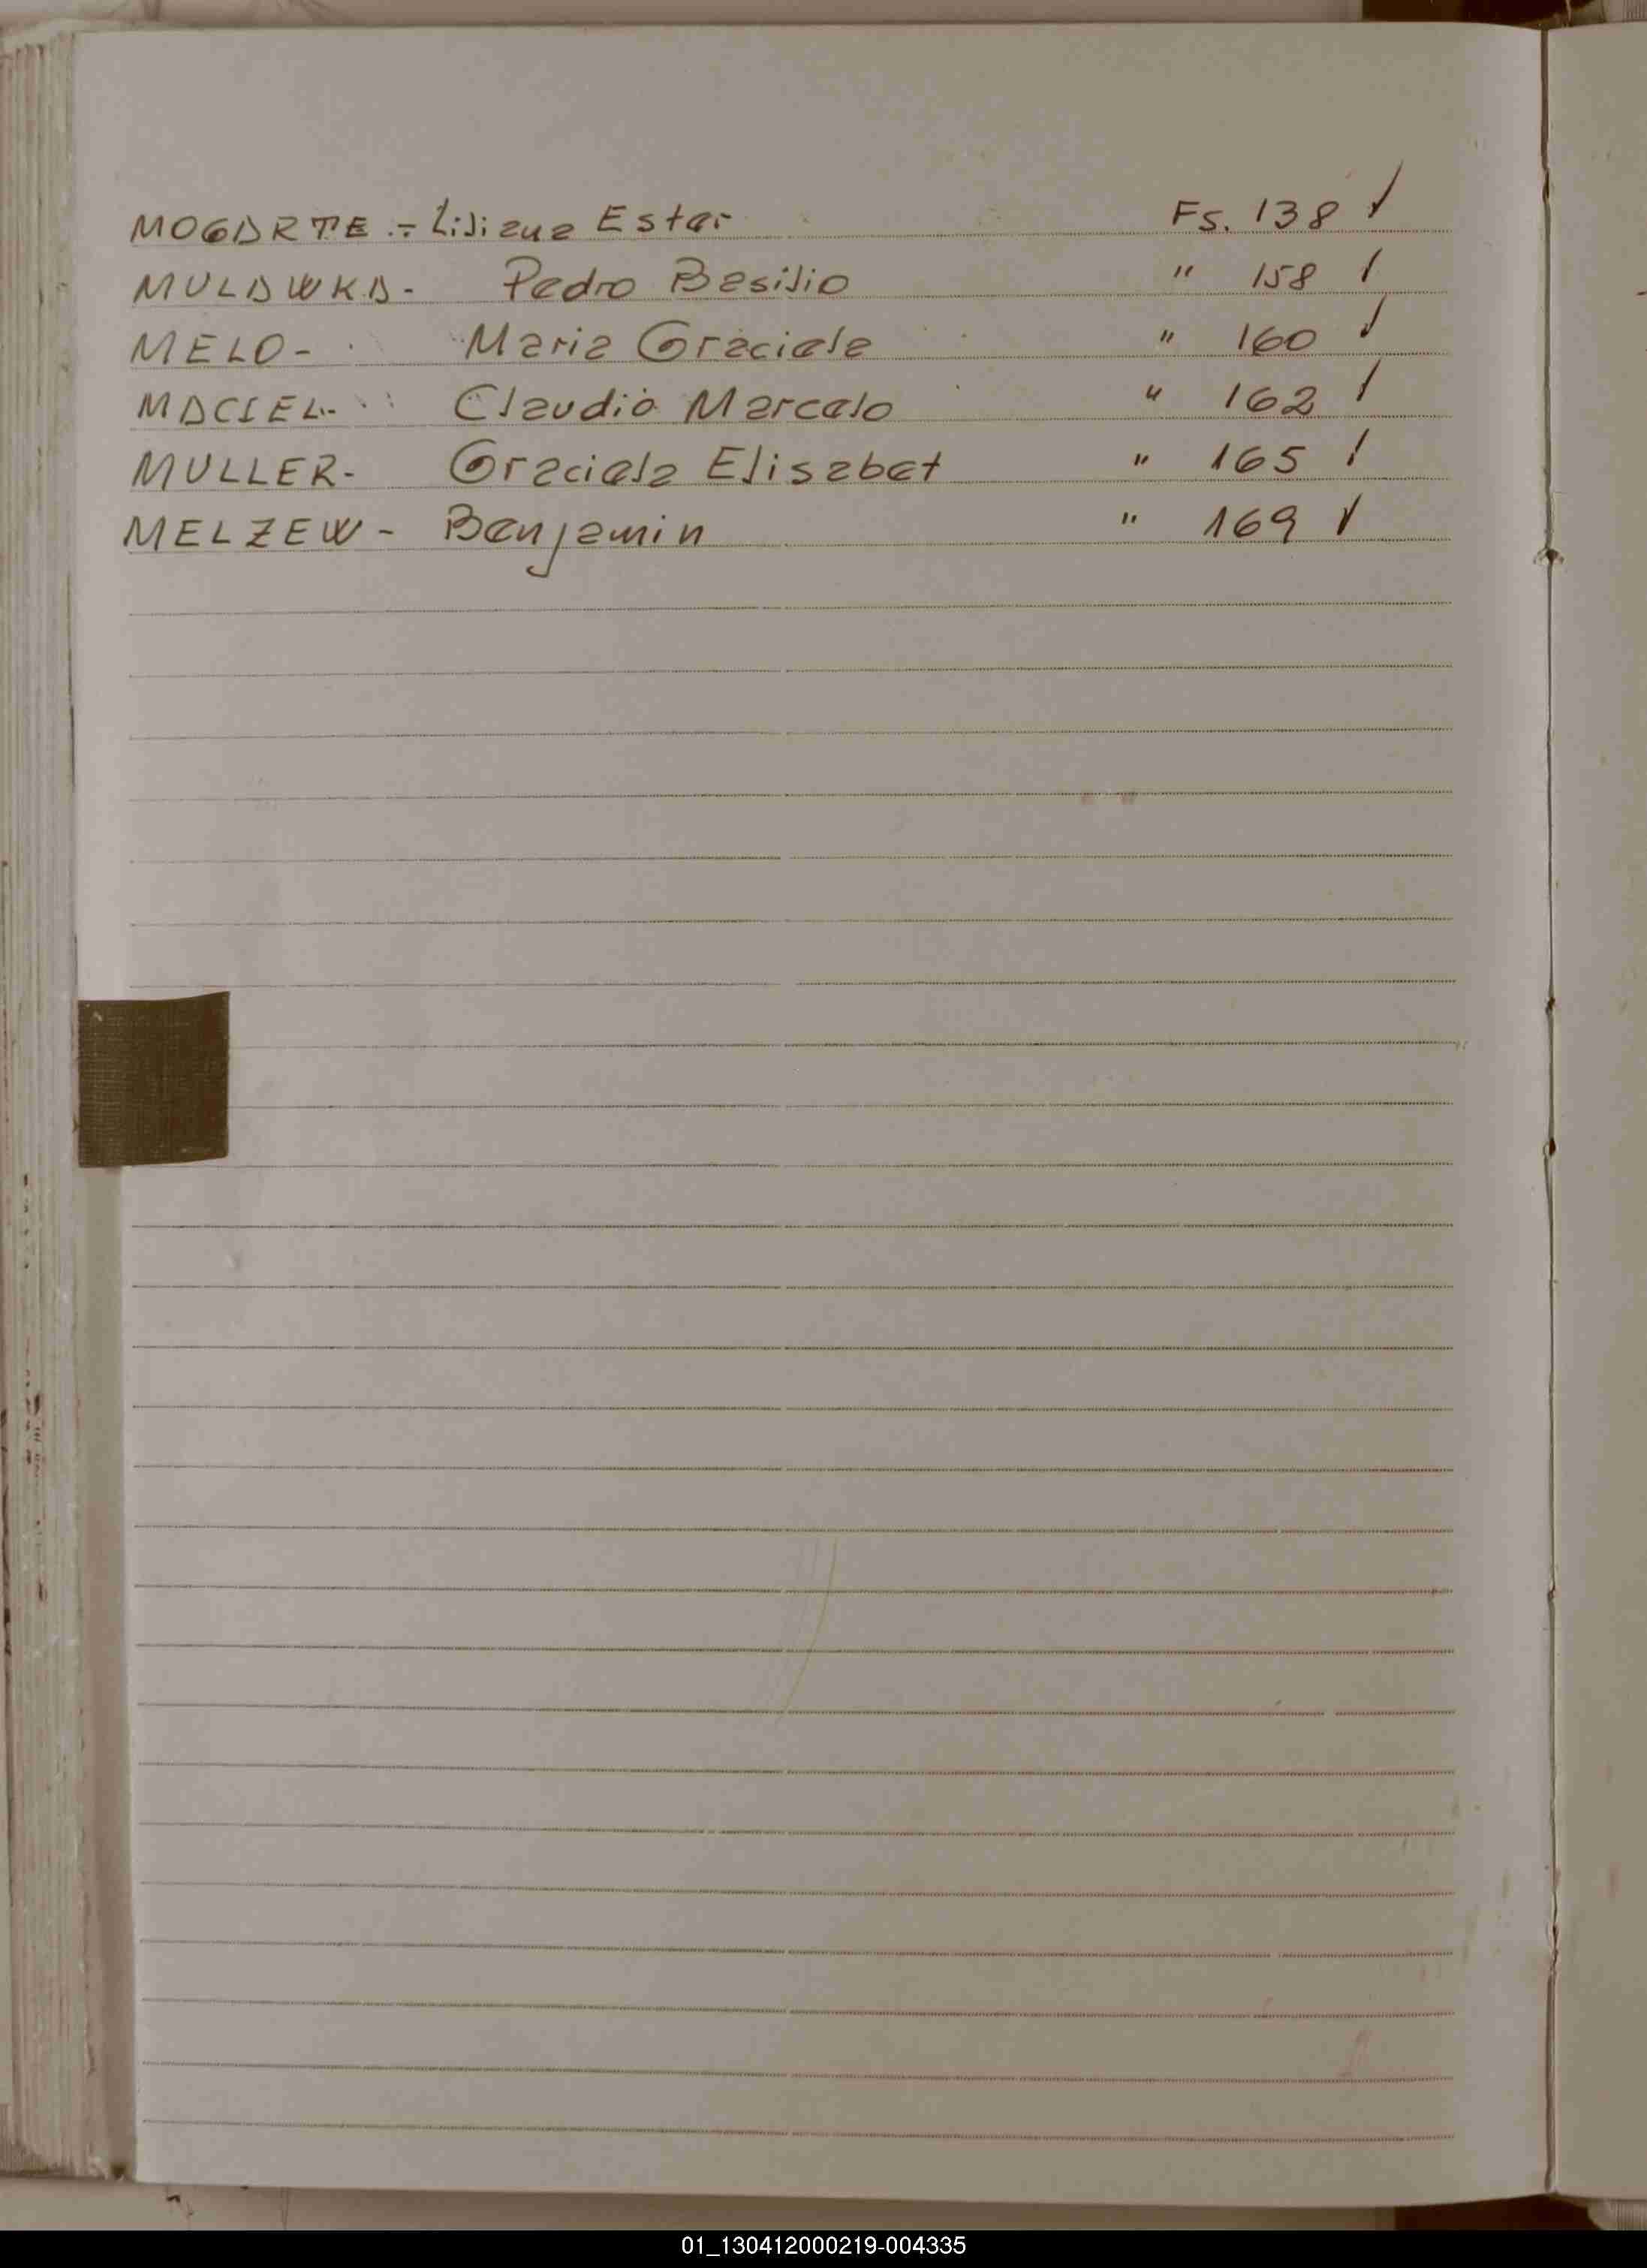 MOGARTE.- Liliana Ester Fs. 138 ✓
MULAWKA- Pedro Basilio " 158 ✓
MELO- Maria Graciela " 160 ✓
MACIEL- Claudio Marcelo " 162 ✓
MULLER- Graciela Elisabet " 165 ✓
MELZEW- Benjamin " 169 ✓
01_130412000219-004335